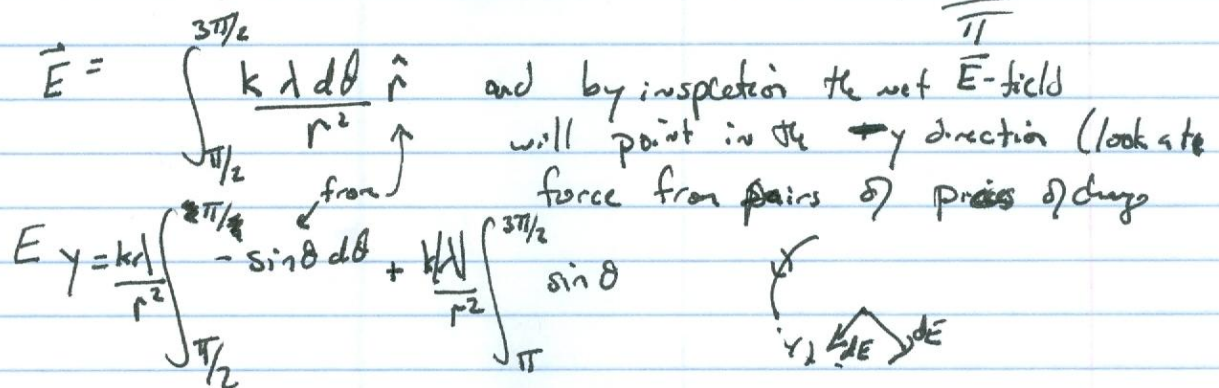 π
E⃗ = ∫_{π/2}^{3π/2} k λ dθ / r² r̂ and by inspection the net E⃗-field
will point in the -y direction (look at
from force from pairs of pieces of charge
E y = krλ/r² ∫_{π/2}^{π} - sinθ dθ + k|λ|/r² ∫_{π}^{3π/2} sin θ
dE dE